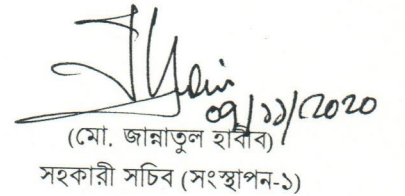 ০৭/১১/২০২০
(মো. জান্নাতুল হাবীব)
সহকারী সচিব (সংস্থাপন-১)